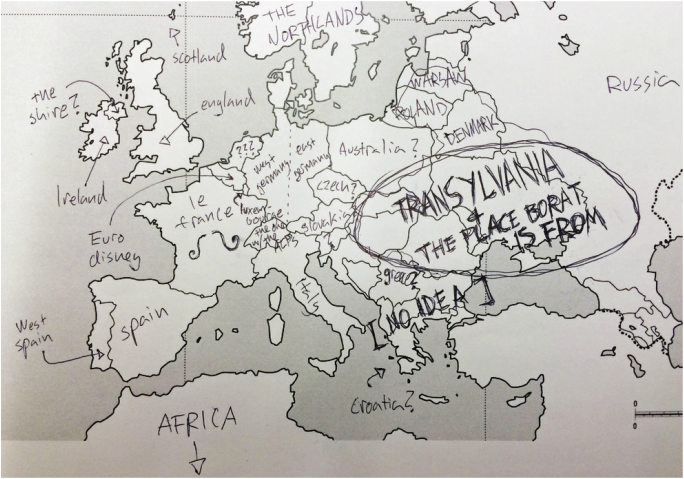 THE
NORTHLANDS
scotland
Russia
the
shire?
england
WARSAW
POLAND
DENMARK
???
west
germany
east
germany
Australia?
TRANSYLVANIA
+
THE PLACE BORAT
IS FROM
Ireland
czech?
le
france
luxem-
bourge
the one
w/ the
ALPS
slovakia?
Euro
disney
greece
[NO IDEA]
West
spain
spain
Croatia?
AFRICA
0
0